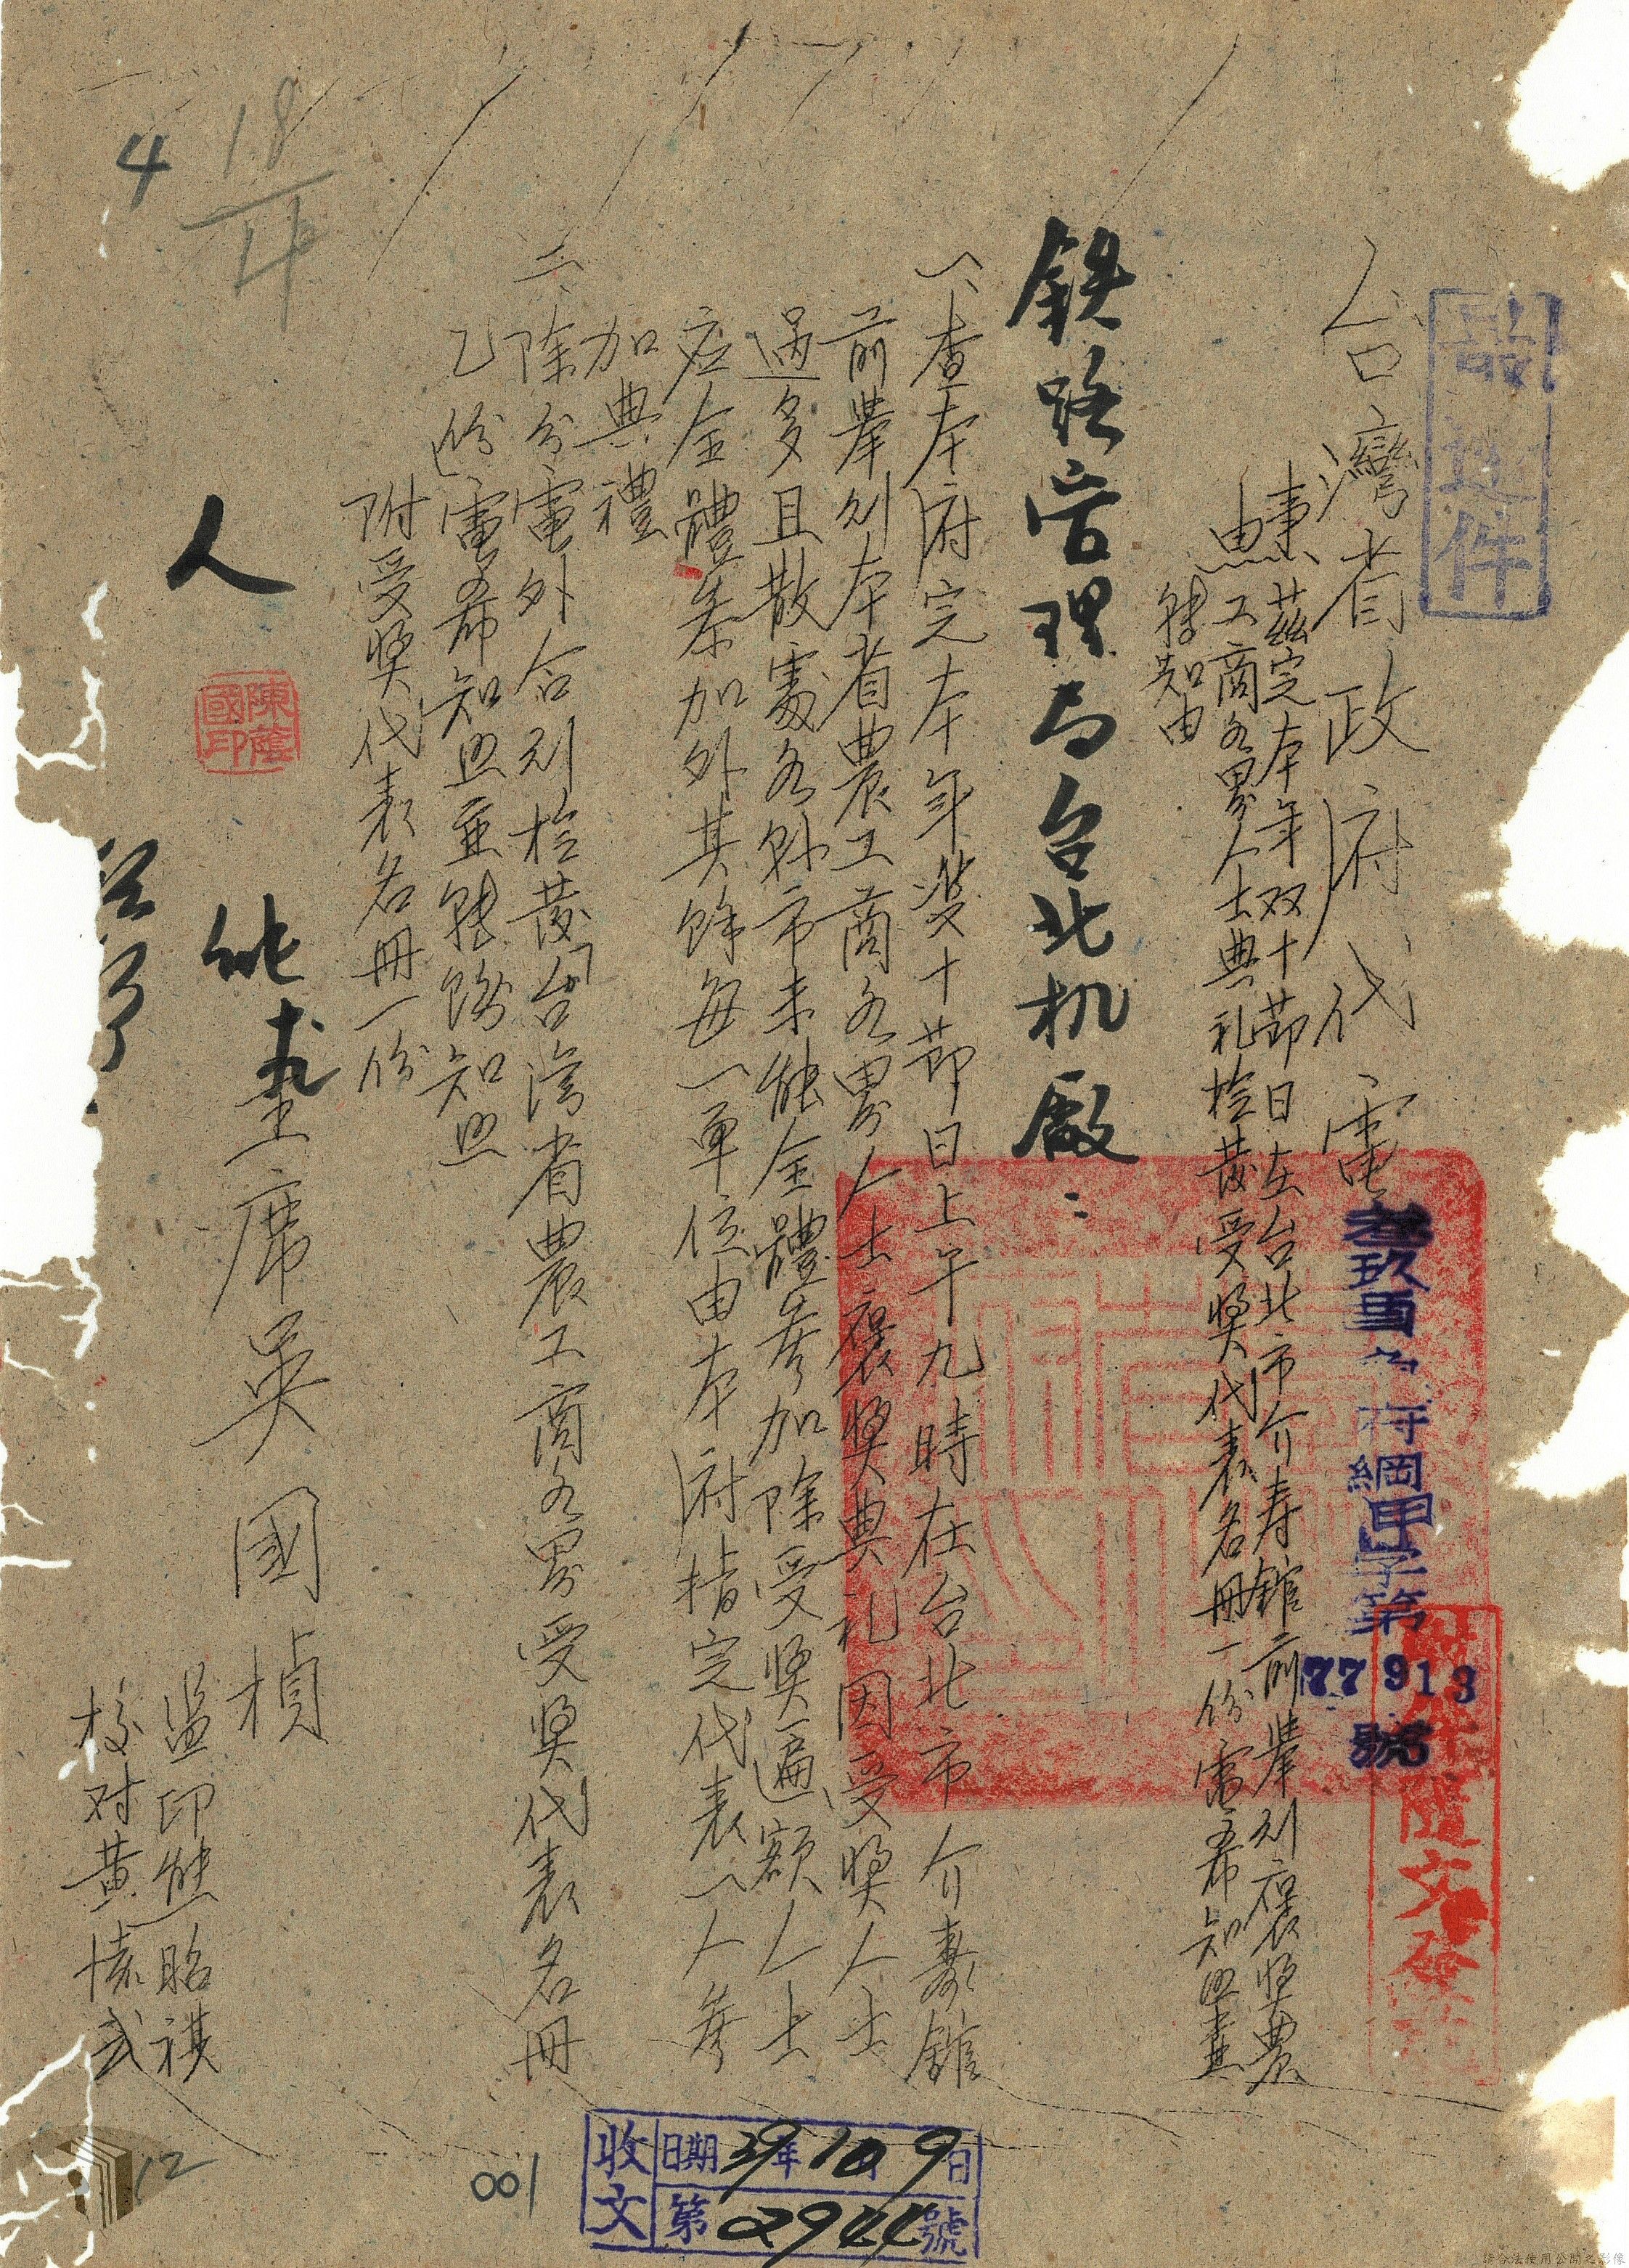 台灣省政府代電
府綱甲字第77913號
事由
茲定本年双十節日在台北市介寿館前舉列褒奨農
工商各界人士典礼檢發受奨代表名冊一份電希知照並
轉知由
鉄路管理局台北机廠：
一、查本府定本年双十節日上午九時在台北市介壽館
前舉列本省農工商各界人士褒奨典礼因受奨人士
過多且散處各縣市未能全體參加除受奨匾額人士
应全體參加外其餘每一單位由本府指定代表一人參
加典禮
二、除分電外合列檢發「台湾省農工商各界受奨代表名冊
乙份」電希知照並轉飭知照
附受奨代表名冊一份
主席吳國楨
監印熊昭祺
校对黃懐武
人
陳舊國印
隨文發
收文
日期39年10月9日
第2944號
4
18
14
001
12
請合法使用公開之影像